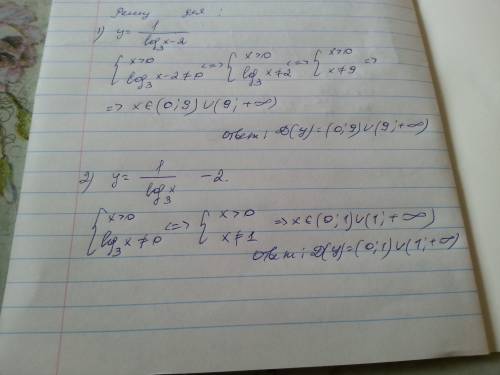 Решу для:
1) y = 1/(log₃ x - 2)
{ x > 0, log₃ x - 2 ≠ 0 <=> { x > 0, log₃ x ≠ 2 <=> { x > 0, x ≠ 9 =>
=> x ∈ (0; 9) ∪ (9; +∞)
Ответ: D(y) = (0; 9) ∪ (9; +∞)
2) y = 1/(log₃ x) - 2.
{ x > 0, log₃ x ≠ 0 <=> { x > 0, x ≠ 1 => x ∈ (0; 1) ∪ (1; +∞)
Ответ: D(y) = (0; 1) ∪ (1; +∞)